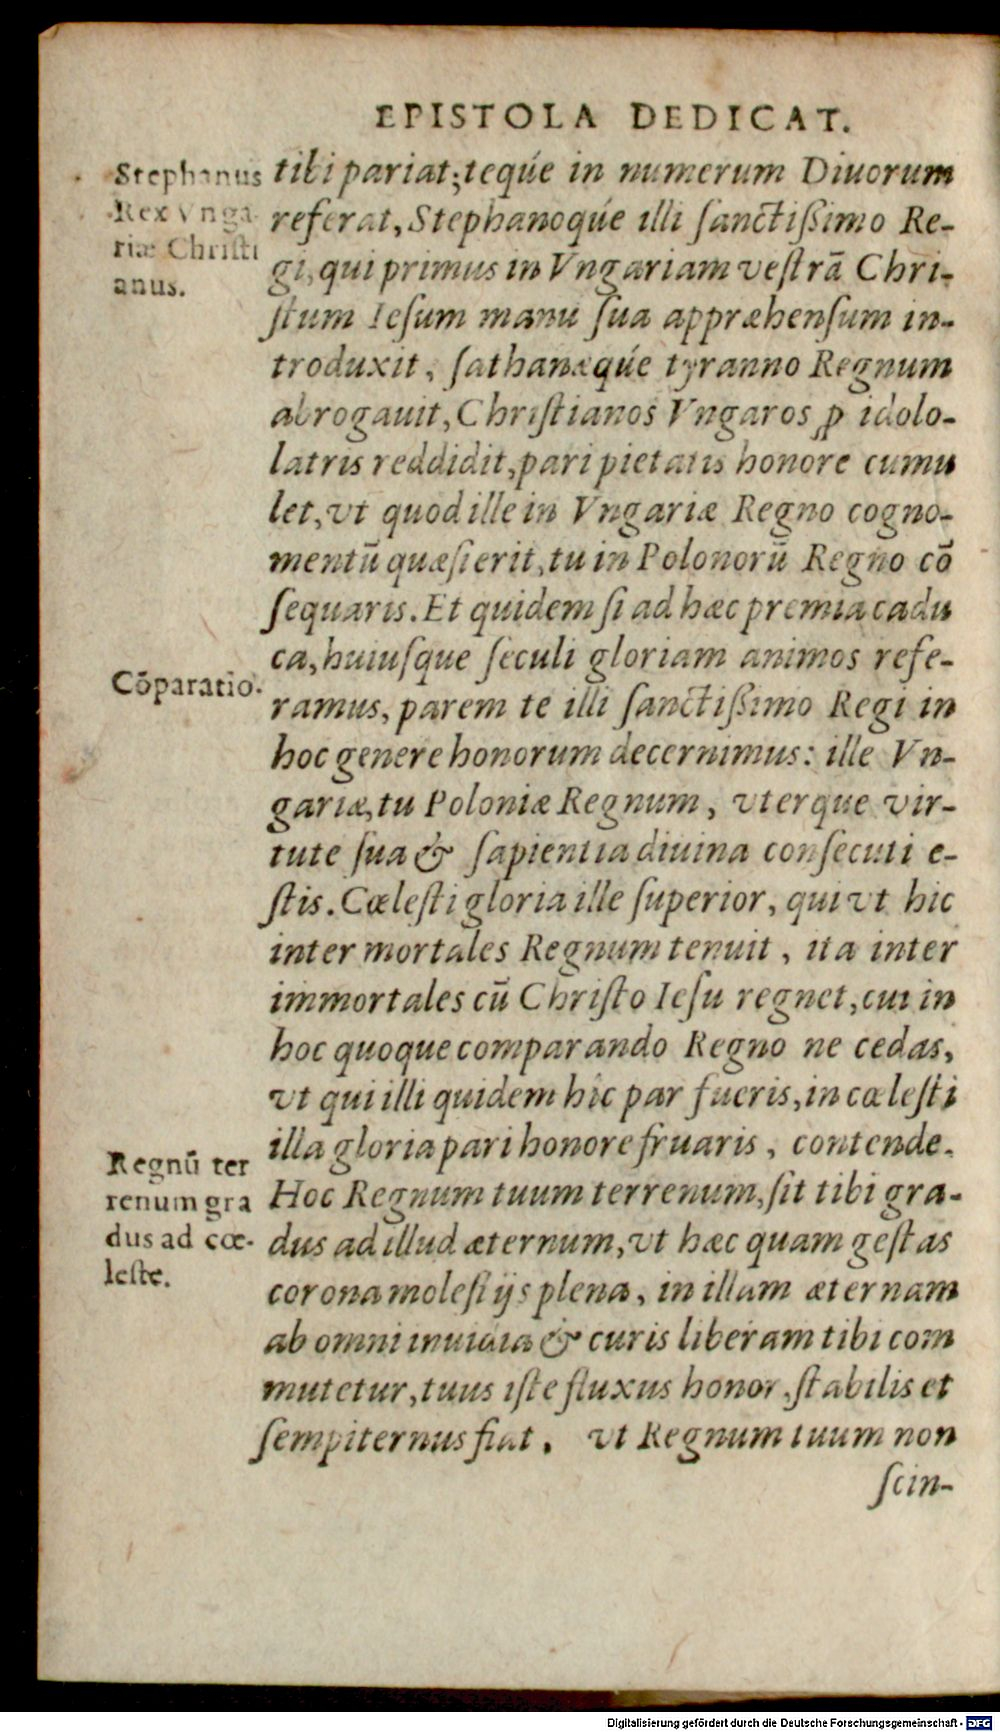 EPISTOLA DEDICAT.
Stephanus
Rex Vnga
riæ Christi
anus.
tibi pariat; teqúe in numerum Diuorum
referat, Stephanoqúe illi ſanctißimo Re-
gi, qui primus in Vngariam veſtrā Chri-
ſtum Ieſum manu ſua appræhenſum in-
troduxit, ſathanæqúe tyranno Regnum
abrogauit, Chriſtianos Vngaros ꝓ idolo-
latris reddidit, pari pietatis honore cumu
let, vt quod ille in Vngariæ Regno cogno-
mentū quæſierit, tu in Polonorū Regno cō
ſequaris. Et quidem ſi ad hæc premia cadu
ca, huiuſque ſeculi gloriam animos refe-
Cōparatio.
ramus, parem te illi ſanctißimo Regi in
hoc genere honorum decernimus: ille Vn-
gariæ, tu Poloniæ Regnum, vterque vir-
tute ſua & ſapientia diuina conſecuti e-
ſtis. Cæleſti gloria ille ſuperior, qui vt hic
inter mortales Regnum tenuit, ita inter
immortales cū Chriſto Ieſu regnet, cui in
hoc quoque comparando Regno ne cedas,
vt qui illi quidem hic par fueris, in cœleſti
illa gloria pari honore fruaris, contende.
Regnū ter
renum gra
dus ad cœ-
leſte.
Hoc Regnum tuum terrenum, ſit tibi gra-
dus ad illud æternum, vt hæc quam geſtas
corona moleſtijs plena, in illam æternam
ab omni inuidia & curis liberam tibi com
mutetur, tuus iſte fluxus honor, ſtabilis et
ſempiternus fiat, vt Regnum tuum non
ſcin-
Digitalisierung gefördert durch die Deutsche Forschungsgemeinschaft - DFG